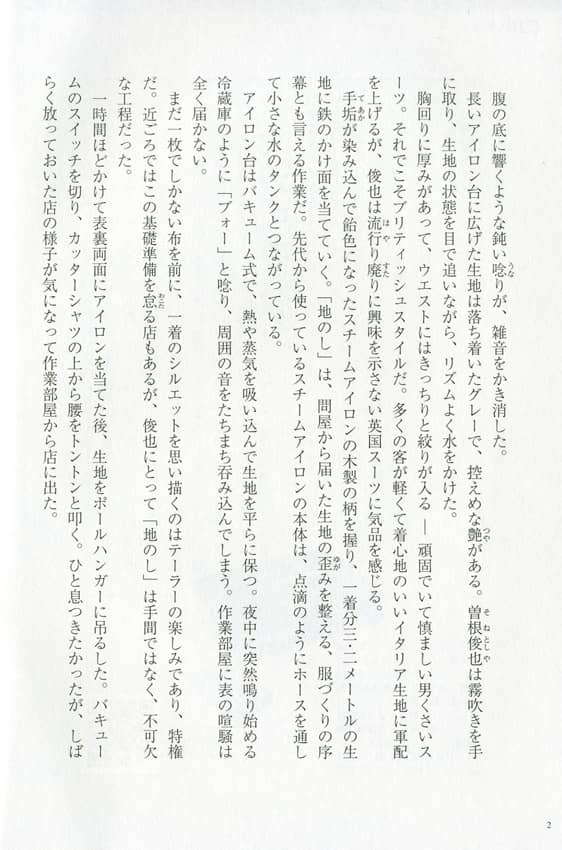 腹の底に響くような鈍い唸りが、雑音をかき消した。
長いアイロン台に広げた生地は落ち着いたグレーで、控えめな艶がある。曽根俊也は霧吹きを手
に取り、生地の状態を目で追いながら、リズムよく水をかけた。
胸回りに厚みがあって、ウエストにはきっちりと絞りが入る――頑固でいて慎ましい男くさいス
ーツ。それでこそブリティッシュスタイルだ。多くの客が軽くて着心地のいいイタリア生地に軍配
を上げるが、俊也は流行り廃りに興味を示さない英国スーツに気品を感じる。
手垢が染み込んで飴色になったスチームアイロンの木製の柄を握り、一着分三・二メートルの生
地に鉄のかけ面を当てていく。「地のし」は、問屋から届いた生地の歪みを整える、服づくりの序
幕とも言える作業だ。先代から使っているスチームアイロンの本体は、点滴のようにホースを通し
て小さな水のタンクとつながっている。
アイロン台はバキューム式で、熱や蒸気を吸い込んで生地を平らに保つ。夜中に突然鳴り始める
冷蔵庫のように「ブォー」と唸り、周囲の音をたちまち呑み込んでしまう。作業部屋に表の喧騒は
全く届かない。
まだ一枚でしかない布を前に、一着のシルエットを思い描くのはテーラーの楽しみであり、特権
だ。近ごろではこの基礎準備を怠る店もあるが、俊也にとって「地のし」は手間ではなく、不可欠
な工程だった。
一時間ほどかけて表裏両面にアイロンを当てた後、生地をポールハンガーに吊るした。バキュー
ムのスイッチを切り、カッターシャツの上から腰をトントンと叩く。ひと息つきたかったが、しば
らく放っておいた店の様子が気になって作業部屋から店に出た。
2